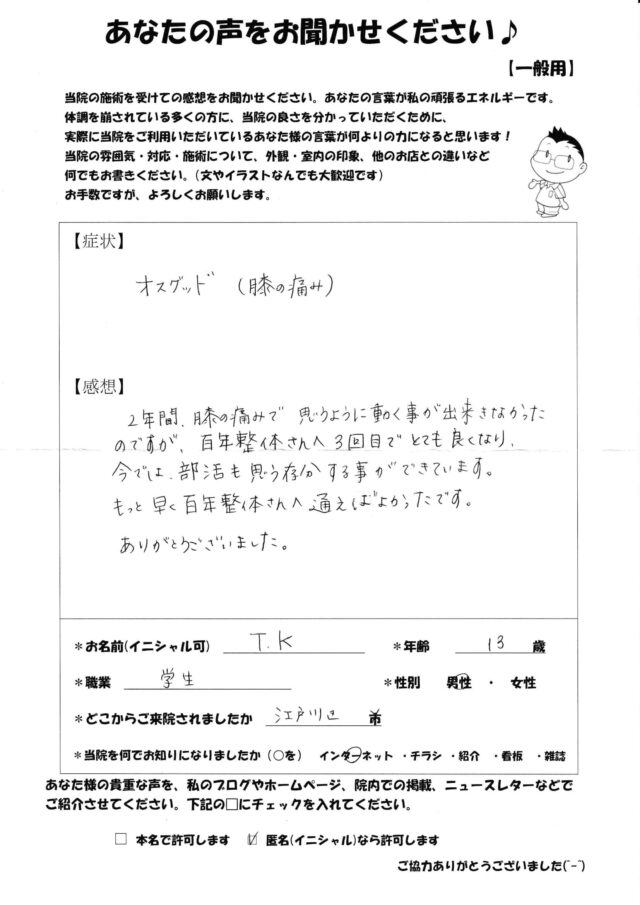 あなたの声をお聞かせください♪
【一般用】
当院の施術を受けての感想をお聞かせください。あなたの言葉が私の頑張るエネルギーです。
体調を崩されている多くの方に、当院の良さを分かっていただくために、
実際に当院をご利用いただいているあなた様の言葉が何よりの力になると思います！
当院の雰囲気・対応・施術について、外観・室内の印象、他のお店との違いなど
何でもお書きください。（文やイラストなんでも大歓迎です）
お手数ですが、よろしくお願いします。
【症状】
オスグッド （膝の痛み）
【感想】
2年間、膝の痛みで 思うように動く事が出来きなかった
のですが、百年整体さんへ 3回目で とても良くなり、
今では、部活も思う存分する事ができています。
もっと早く百年整体さんへ通えばよかったです。
ありがとうございました。
＊お名前（イニシャル可） T.K ＊年齢 13 歳
＊職業 学生 ＊性別 男性 ・ 女性
＊どこからご来院されましたか 江戸川区 市
＊当院を何でお知りになりましたか（○を） インターネット ・チラシ ・紹介 ・看板 ・雑誌
あなた様の貴重な声を、私のブログやホームページ、院内での掲載、ニュースレターなどで
ご紹介させてください。下記の□にチェックを入れてください。
□ 本名で許可します ☑ 匿名（イニシャル）なら許可します
ご協力ありがとうございました(^-^)